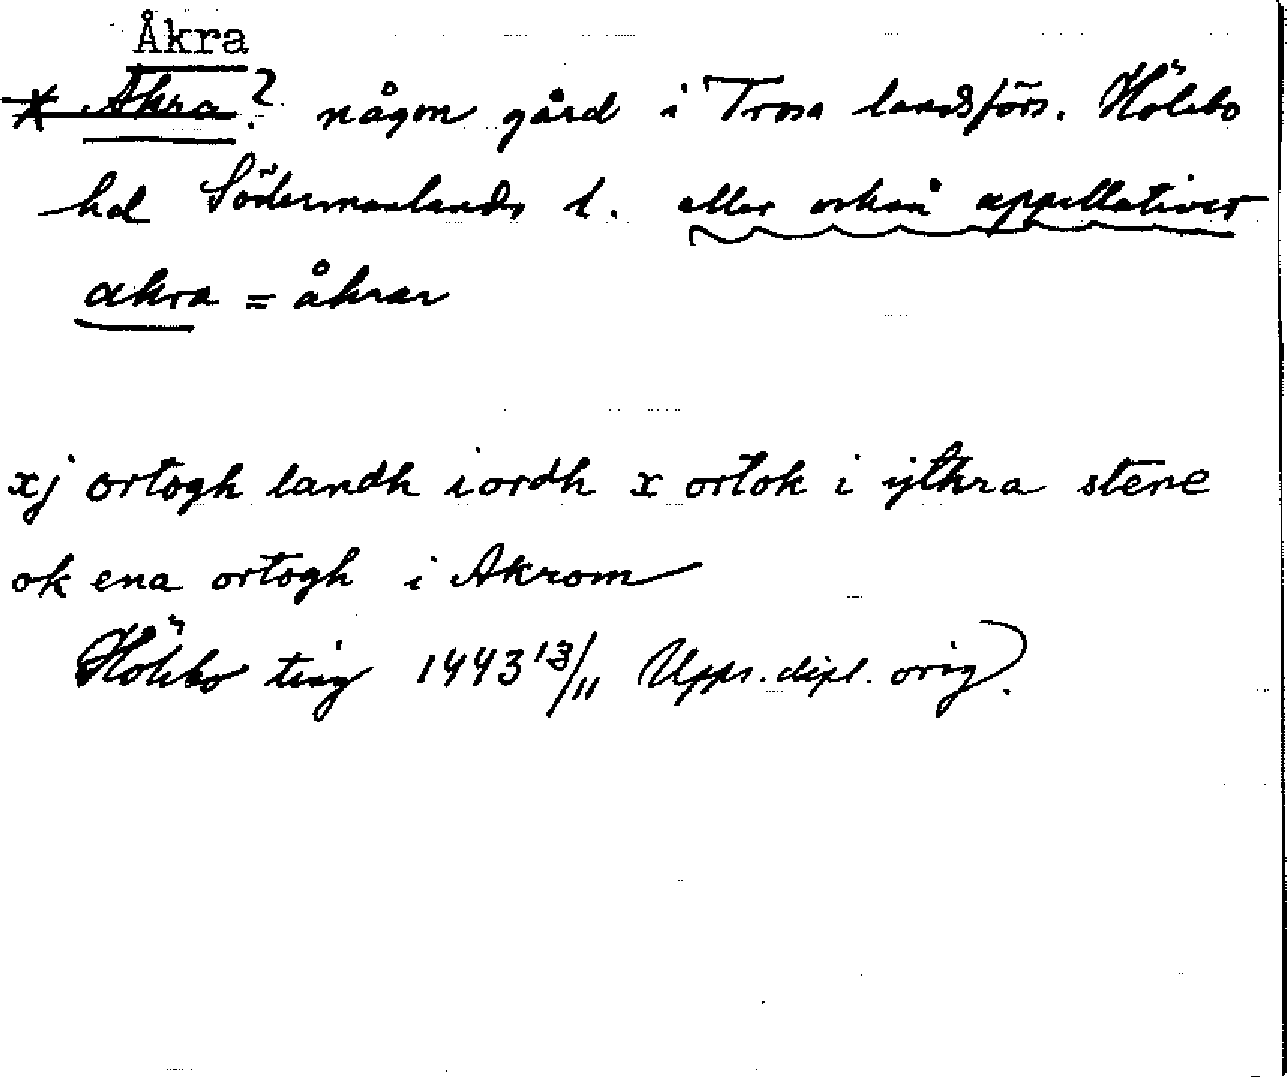 Åkra
* Akra? någon gård i Trosa landsförs. Hölebo
hd Södermanlands l. eller också appellativet
akra = åkrar
xj ortogh landh iordh x ortok i ythra stene
ok ena ortogh i Akrom
Hölebo ting 1443 13/11 Upps. dipl. orig).